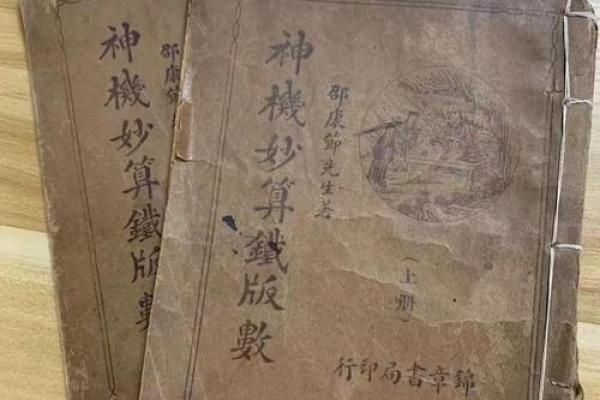 神機妙算鐵版數
邵康節先生著
(上册)
行印局書章錦
神機妙算鐵版數
邵康節